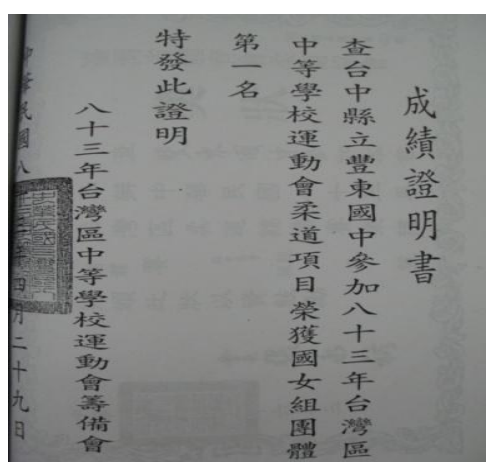 成績證明書
查台中縣立豐東國中參加八十三年台灣區
中等學校運動會柔道項目榮獲國女組團體
第一名
特發此證明
八十三年台灣區中等學校運動會籌備會
中華民國八十三年四月二十九日